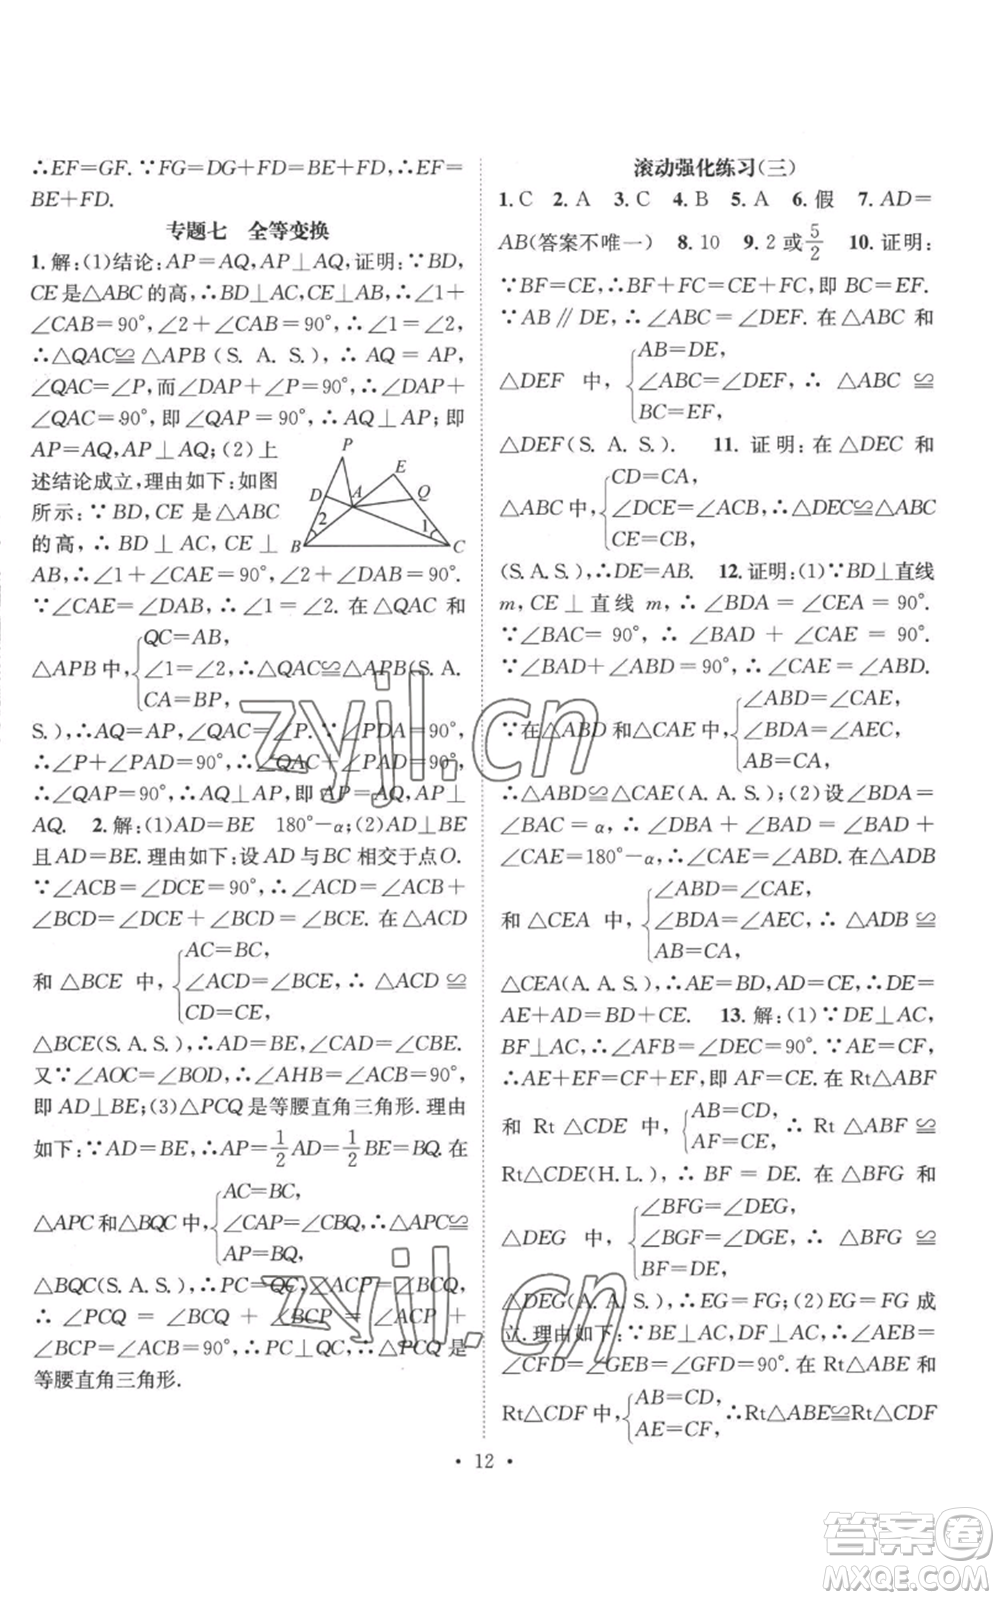 ∴EF=GF.∵FG=DG+FD=BE+FD,∴EF=
BE+FD.
专题七　全等变换
1.解:(1)结论:AP=AQ,AP⊥AQ,证明:∵BD,
CE是△ABC的高,∴BD⊥AC,CE⊥AB,∴∠1+
∠CAB=90°,∠2+∠CAB=90°,∴∠1=∠2,
∴△QAC≌△APB(S.A.S.),∴AQ=AP,
∠QAC=∠P,而∠DAP+∠P=90°,∴∠DAP+
∠QAC=90°,即∠QAP=90°,∴AQ⊥AP;即
AP=AQ,AP⊥AQ;(2)上
述结论成立,理由如下:如图
所示:∵BD,CE是△ABC
的高,∴BD⊥AC,CE⊥
P
E
D
A
Q
2
1
B
C
AB,∴∠1+∠CAE=90°,∠2+∠DAB=90°.
∵∠CAE=∠DAB,∴∠1=∠2.在△QAC和
△APB中,{QC=AB,
∠1=∠2,∴△QAC≌△APB(S.A.
CA=BP,
S.),∴AQ=AP,∠QAC=∠P.∵∠PDA=90°,
∴∠P+∠PAD=90°,∴∠QAC+∠PAD=90°,
∴∠QAP=90°,∴AQ⊥AP,即AP=AQ,AP⊥
AQ.　2.解:(1)AD=BE　180°-α;(2)AD⊥BE
且AD=BE.理由如下:设AD与BC相交于点O.
∵∠ACB=∠DCE=90°,∴∠ACD=∠ACB+
∠BCD=∠DCE+∠BCD=∠BCE.在△ACD
和△BCE中,{AC=BC,
∠ACD=∠BCE,∴△ACD≌
CD=CE,
△BCE(S.A.S.),∴AD=BE,∠CAD=∠CBE.
又∵∠AOC=∠BOD,∴∠AHB=∠ACB=90°,
即AD⊥BE;(3)△PCQ是等腰直角三角形.理由
如下:∵AD=BE,∴AP=1/2AD=1/2BE=BQ.在
△APC和△BQC中,{AC=BC,
∠CAP=∠CBQ,∴△APC≌
AP=BQ,
△BQC(S.A.S.),∴PC=QC,∠ACP=∠BCQ,
∴∠PCQ=∠BCQ+∠BCP=∠ACP+
∠BCP=∠ACB=90°,∴PC⊥QC,∴△PCQ是
等腰直角三角形.
滚动强化练习(三)
1.C　2.A　3.C　4.B　5.A　6.假　7.AD=
AB(答案不唯一)　8.10　9.2或5/2　10.证明:
∵BF=CE,∴BF+FC=CE+FC,即BC=EF.
∵AB∥DE,∴∠ABC=∠DEF.在△ABC和
△DEF中,{AB=DE,
∠ABC=∠DEF,∴△ABC≌
BC=EF,
△DEF(S.A.S.).　11.证明:在△DEC和
△ABC中,{CD=CA,
∠DCE=∠ACB,∴△DEC≌△ABC
CE=CB,
(S.A.S.),∴DE=AB.　12.证明:(1)∵BD⊥直线
m,CE⊥直线m,∴∠BDA=∠CEA=90°.
∵∠BAC=90°,∴∠BAD+∠CAE=90°.
∵∠BAD+∠ABD=90°,∴∠CAE=∠ABD.
∵在△ABD和△CAE中,{∠ABD=∠CAE,
∠BDA=∠AEC,
AB=CA,
∴△ABD≌△CAE(A.A.S.);(2)设∠BDA=
∠BAC=α,∴∠DBA+∠BAD=∠BAD+
∠CAE=180°-α,∴∠CAE=∠ABD.在△ADB
和△CEA中,{∠ABD=∠CAE,
∠BDA=∠AEC,∴△ADB≌
AB=CA,
△CEA(A.A.S.),∴AE=BD,AD=CE,∴DE=
AE+AD=BD+CE.　13.解:(1)∵DE⊥AC,
BF⊥AC,∴∠AFB=∠DEC=90°.∵AE=CF,
∴AE+EF=CF+EF,即AF=CE.在Rt△ABF
和Rt△CDE中,{AB=CD,
AF=CE,∴Rt△ABF≌
Rt△CDE(H.L.),∴BF=DE.在△BFG和
△DEG中,{∠BFG=∠DEG,
∠BGF=∠DGE,∴△BFG≌
BF=DE,
△DEG(A.A.S.),∴EG=FG;(2)EG=FG成
立.理由如下:∵BE⊥AC,DF⊥AC,∴∠AEB=
∠CFD=∠GEB=∠GFD=90°.在Rt△ABE和
Rt△CDF中,{AB=CD,
AE=CF,∴Rt△ABE≌Rt△CDF
• 12 •
zyjl.cn
zyjl.cn
答案卷
MXQE.COM